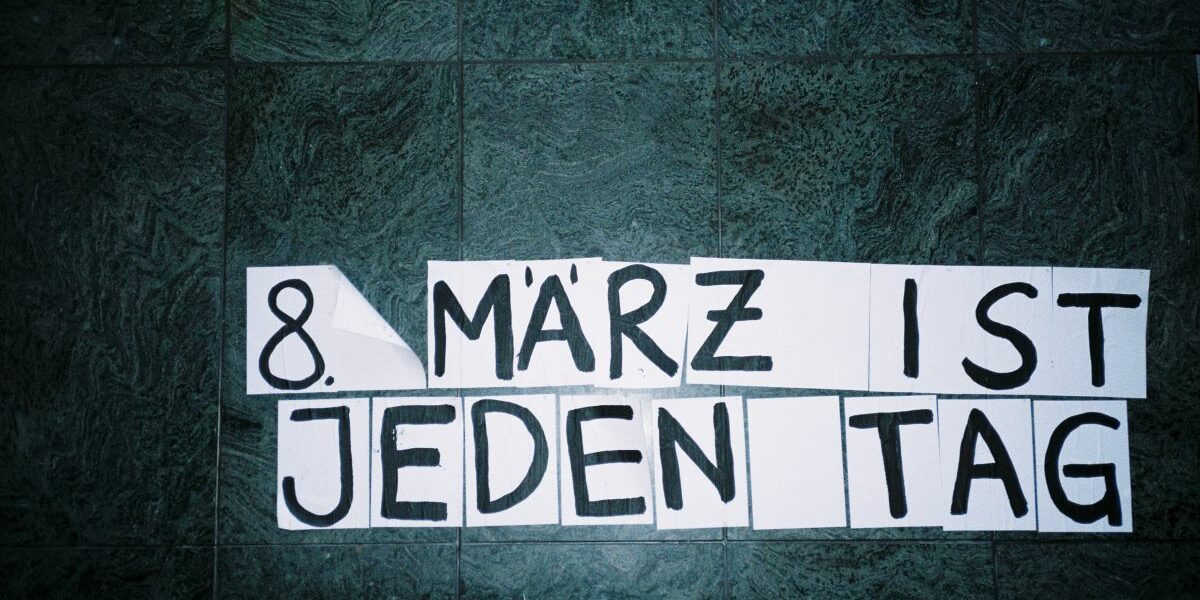 8. MÄRZ IST
JEDEN TAG